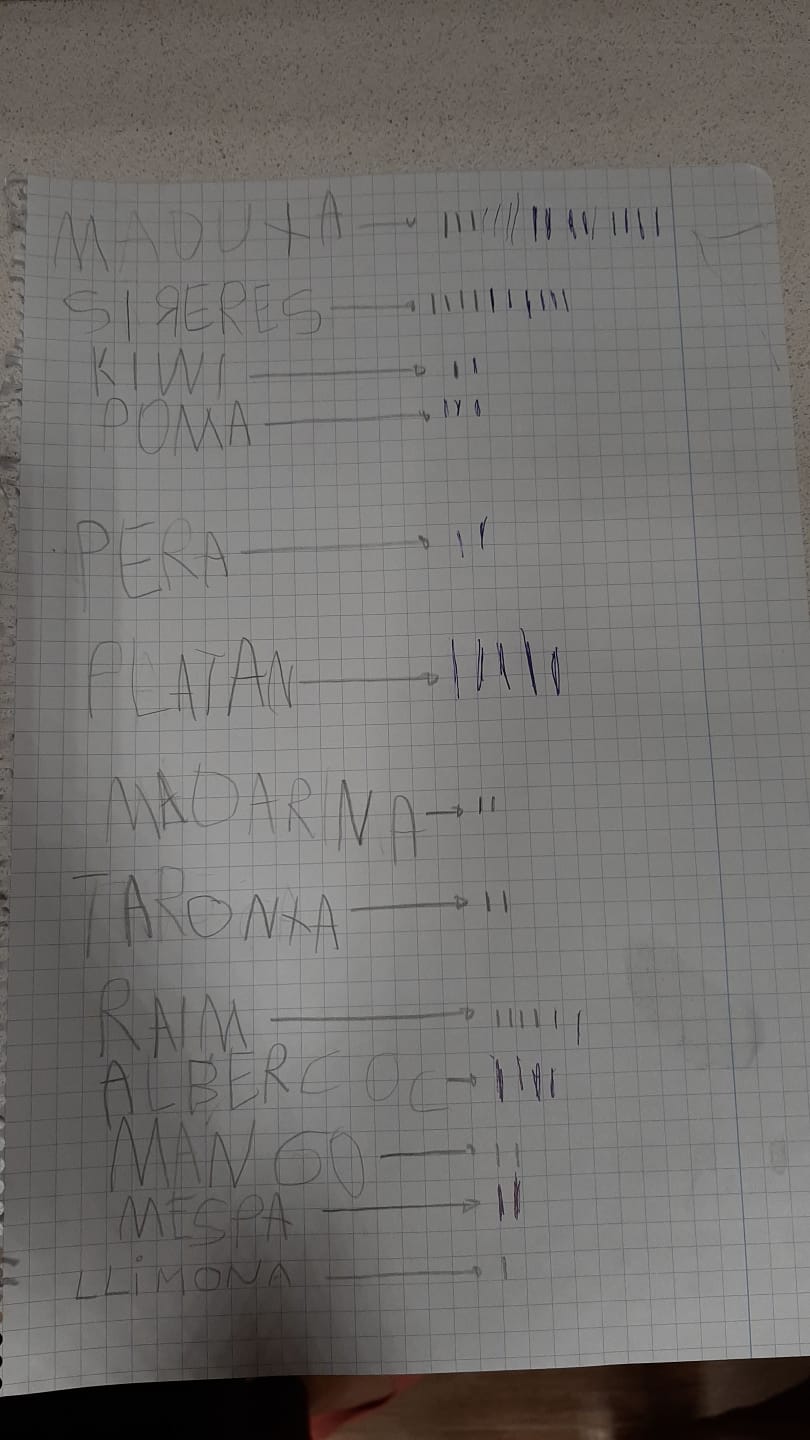 MADUXA → ||||||||||||||||||
SIRERES → |||||||||||
KIWI → ||
POMA → |||
PERA → ||
PLATAN → |||||
MADARINA → ||
TARONXA → ||
RAIM → ||||||
ALBERCOC → ||||
MANGO → ||
MESPA → ||
LLiMONA → |